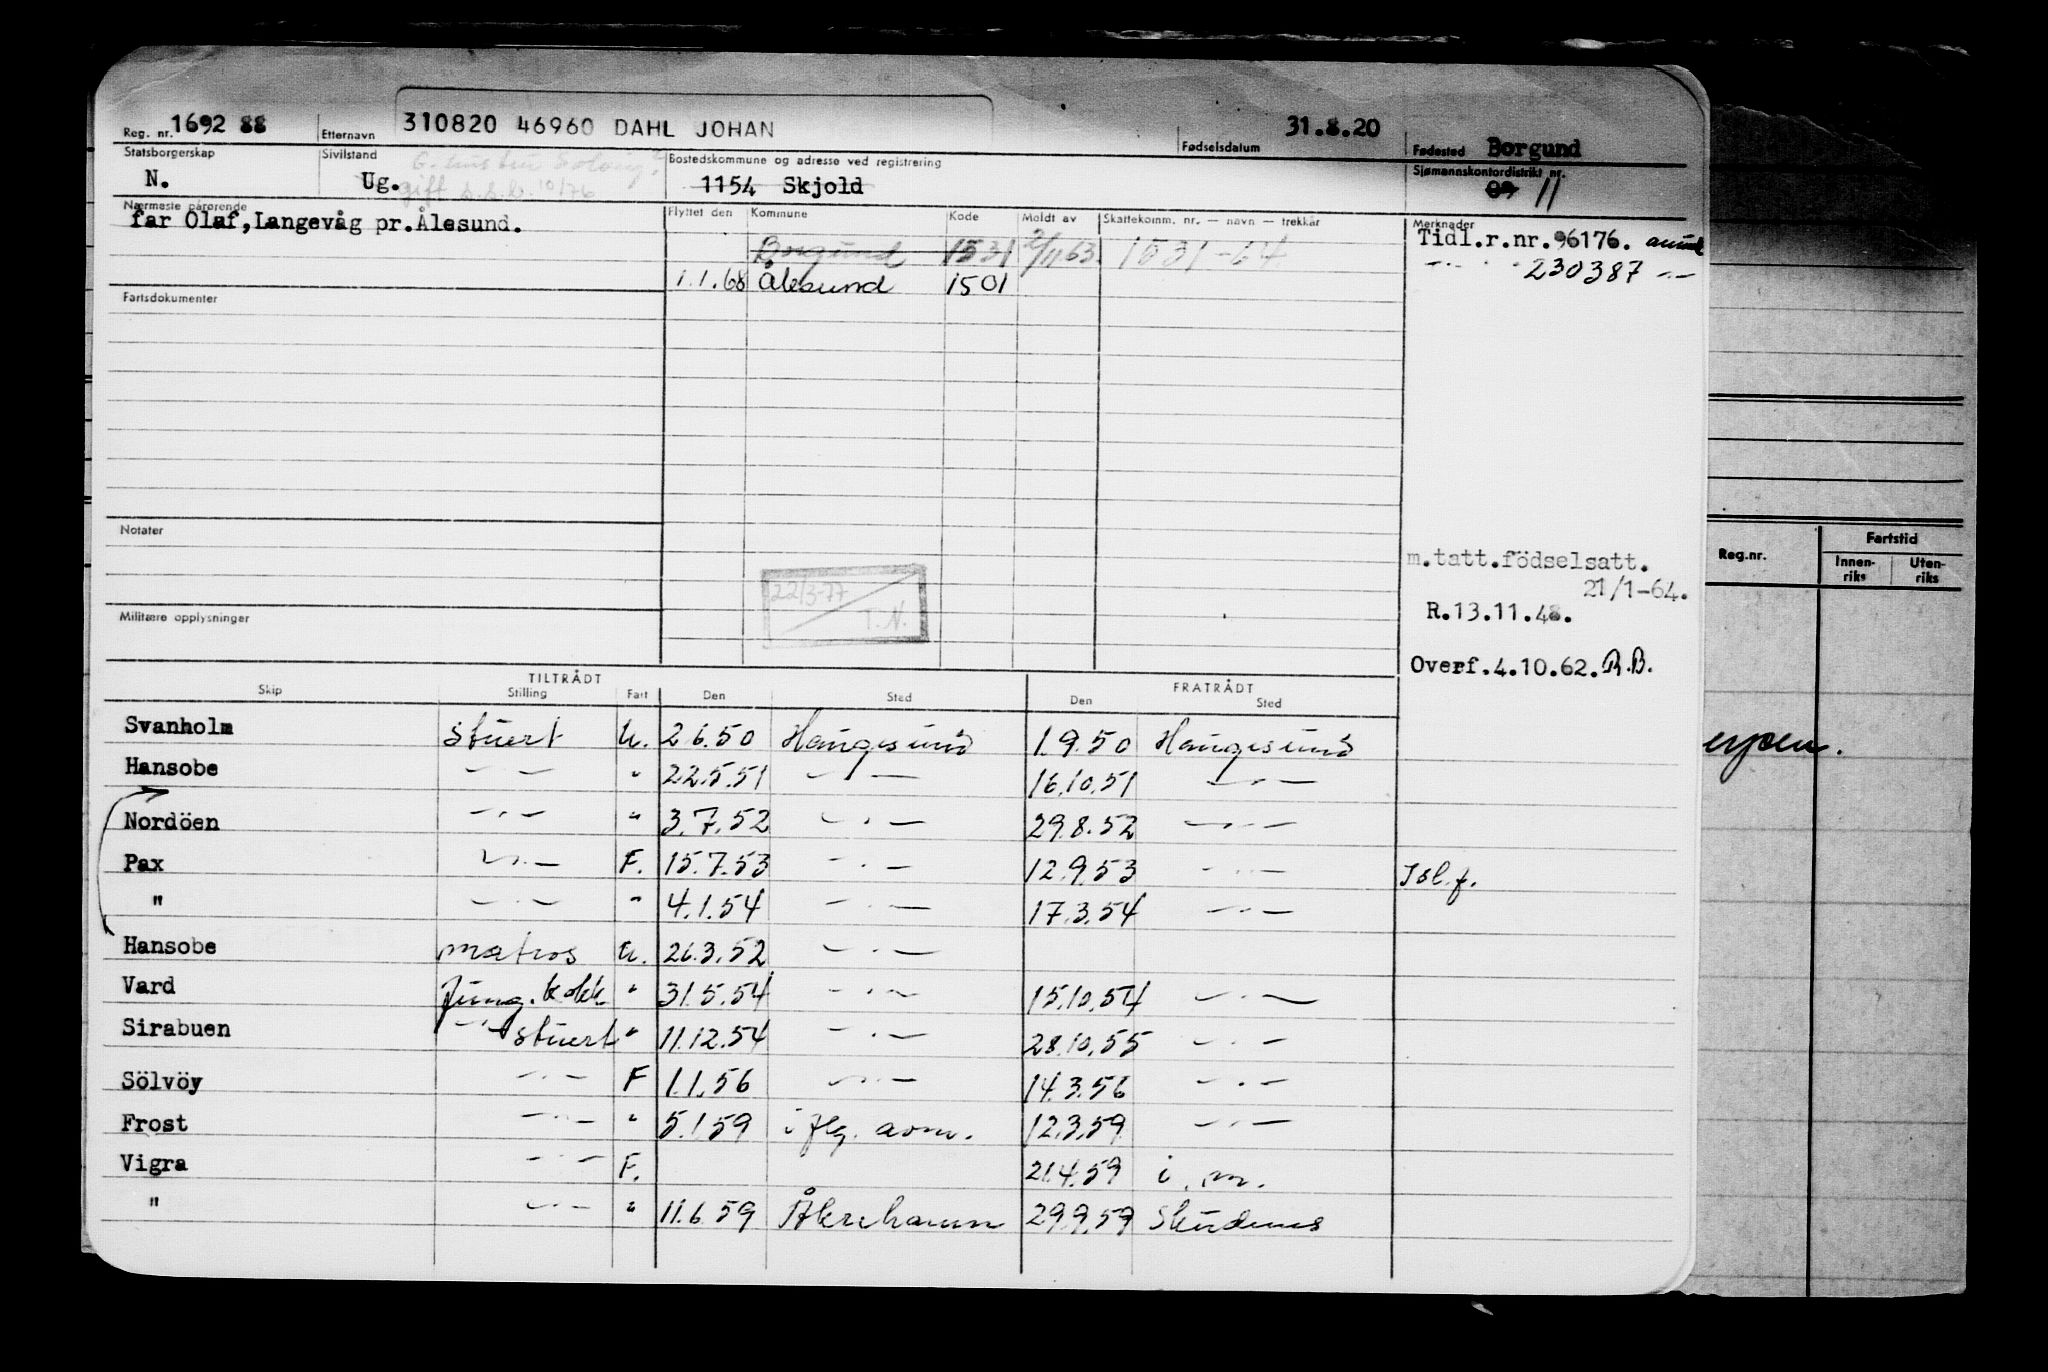 Reg. nr. 1692 88 Etternavn 310820 46960 DAHL JOHAN Fødselsdatum 31.8.20 Fødested Borgund
Statsborgerskap N. Sivilstand Ug. gift 10/76 Bostedskommune og adresse ved registrering 1154 Skjold Sjømannskontordistrikt nr. 09 11
Nærmeste pårørende far Olaf, Langevåg pr. Ålesund.
Flyttet den Kommune Kode Meldt av Skattekomm. nr. — navn — trekkår Merknader
Borgund 1531 2/11 63. 1531-64 Tidl.r.nr. 96176.
1.1.68 Ålesund 1501 — " — 230387 — " —
Fartsdokumenter
Notater
m.tatt.födselsatt.
21/1-64.
22/3-77
T.N.
Militære opplysninger
R.13.11.48.
Overf.4.10.62. R.B.
TILTRÅDT FRATRÅDT
Skip Stilling Fart Den Sted Den Sted
Svanholm stuert U. 2.6.50 Haugesund 1.9.50 Haugesund
Hansobe — " — " 22.5.51 — " — 16.10.51 — " —
Nordöen — " — " 3.7.52 — " — 29.8.52 — " —
Pax — " — F. 15.7.53 — " — 12.9.53 — " — Isl.f.
" — " — " 4.1.54 — " — 17.3.54 — " —
Hansobe matros U. 26.3.52 — " —
Vard Jung. kokk " 31.5.54 — " — 15.10.54 — " —
Sirabuen — " — stuert " 11.12.54 — " — 28.10.55 — " —
Sölvöy — " — F 1.1.56 — " — 14.3.56 — " —
Frost — " — " 5.1.59 i flg. avm. 12.3.59 — " —
Vigra — " — F. 21.4.59 i. m.
" — " — " 11.6.59 Åkrehamn 29.9.59 Skudenes
Reg.nr. Fartstid
Innen-
riks
Uten-
riks